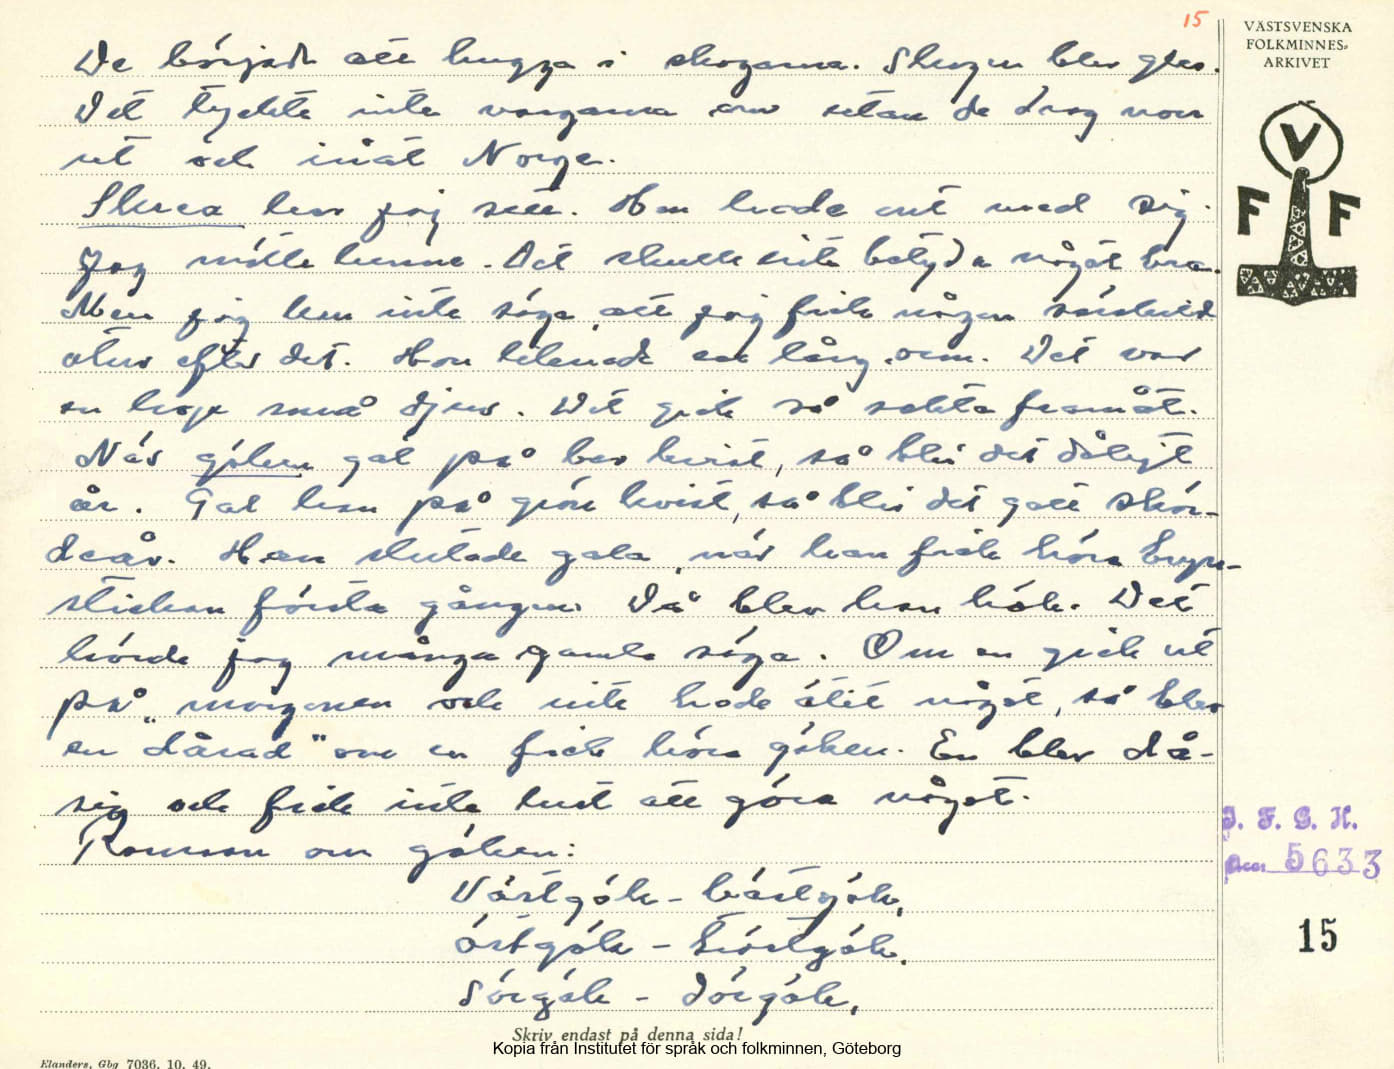 15
VÄSTSVENSKA
FOLKMINNES-
ARKIVET
V
F F
De började att hugga i skogarna. Skogen blev gles.
Det tyckte inte vargarna om utan de drog norr
ut och inåt Norge.
Skrea har jag sett. Hon hade ont med sig.
Jag mötte henne. Det skulle inte betyda något bra.
Men jag kan inte säga, att jag fick någon särskild
otur efter det. Hon liknade en lång orm. Det var
en hop små djur. Det gick så sakta framåt.
När göken gal på bar kvist, så blir det dåligt
år. Gal han på grön kvist, så blir det gott skör-
deår. Han slutade gala, när han fick höra
stickan första gången. Då blev han hök. Det
hörde jag många gamla säga. Om en gick ut
på morgonen och inte hade ätit något, så blev
en "dårad" om en fick höra göken. En blev då-
sig och fick inte lust att göra något.
Ramsan om göken:
Västgök - bästgök,
östgök - tröstgök,
Sörgök - dörgök,
I. F. G. H.
Acc. 5633
15
Skriv endast på denna sida!
Kopia från Institutet för språk och folkminnen, Göteborg
Elanders, Gbg 7036. 10. 49.